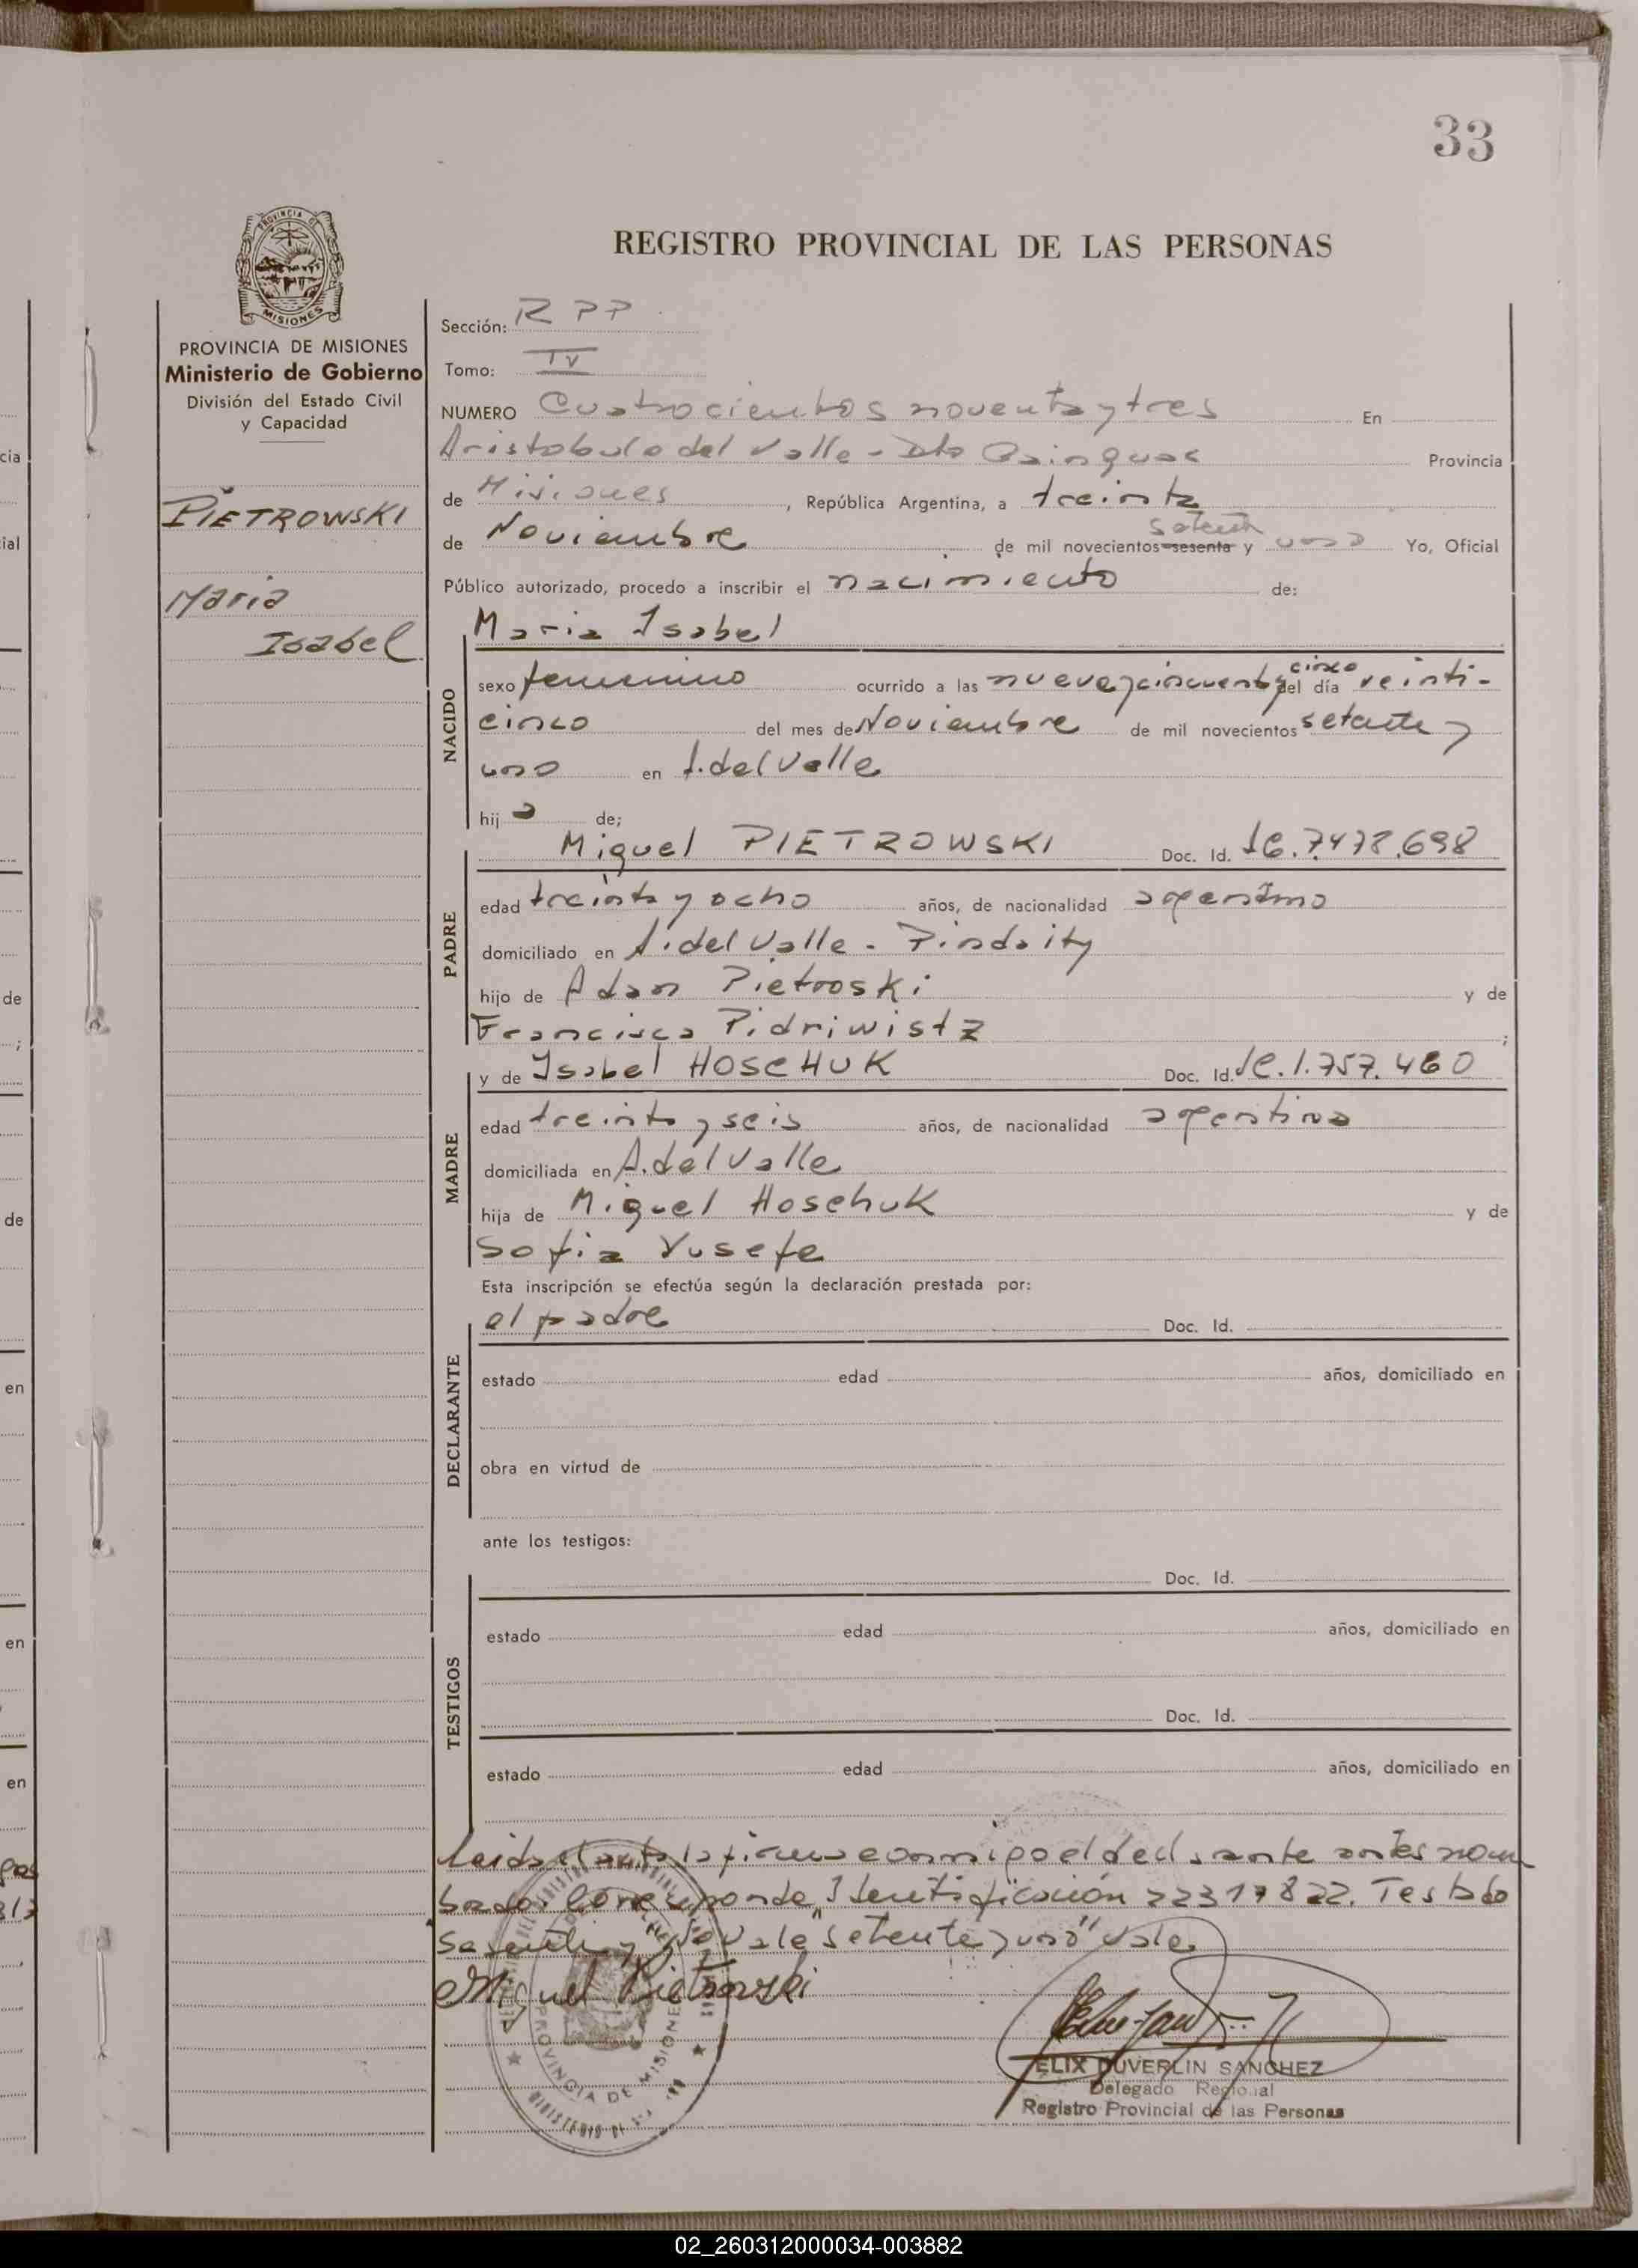 33
REGISTRO PROVINCIAL DE LAS PERSONAS
PROVINCIA DE MISIONES
Ministerio de Gobierno
División del Estado Civil
y Capacidad
PIETROWSKI
Maria
Isabel
Sección: R P P
Tomo: IV
NUMERO Cuatrocientos noventa y tres En
Aristobulo del Valle - Dto Cainguas Provincia
de Misiones, República Argentina, a treinta
setenta
de Noviembre de mil novecientos sesenta y uno Yo, Oficial
Público autorizado, procedo a inscribir el nacimiento de:
Maria Isabel
NACIDO
cinco
sexo femenino ocurrido a las nueve y cincuenta y del día veinti-
cinco del mes de Noviembre de mil novecientos setenta y
uno en A. del Valle
hija de;
PADRE
Miguel PIETROWSKI Doc. Id. LE. 7.478.698
edad treinta y ocho años, de nacionalidad argentino
domiciliado en A. del Valle - Pindaity
hijo de Adan Pietroski y de
Francisca Pidriwistz ;
MADRE
y de Isabel HOSCHUK Doc. Id. LC. 1.757.460
edad treinta y seis años, de nacionalidad argentina
domiciliada en A. del Valle
hija de Miguel Hoschuk y de
Sofia Yusefe
Esta inscripción se efectúa según la declaración prestada por:
DECLARANTE
el padre Doc. Id.
estado edad años, domiciliado en
obra en virtud de
ante los testigos:
TESTIGOS
Doc. Id.
estado edad años, domiciliado en
Doc. Id.
estado edad años, domiciliado en
Leida el acta la firma conmigo el declarante antes nom
brado. Corresponde Identificación 22317822. Testado
sesenta y "No vale" setenta y uno" vale
Miguel Pietrowski
PROVINCIA DE MISIONES
FELIX DUVERLIN SANCHEZ
Delegado Regional
Registro Provincial de las Personas
02_260312000034-003882